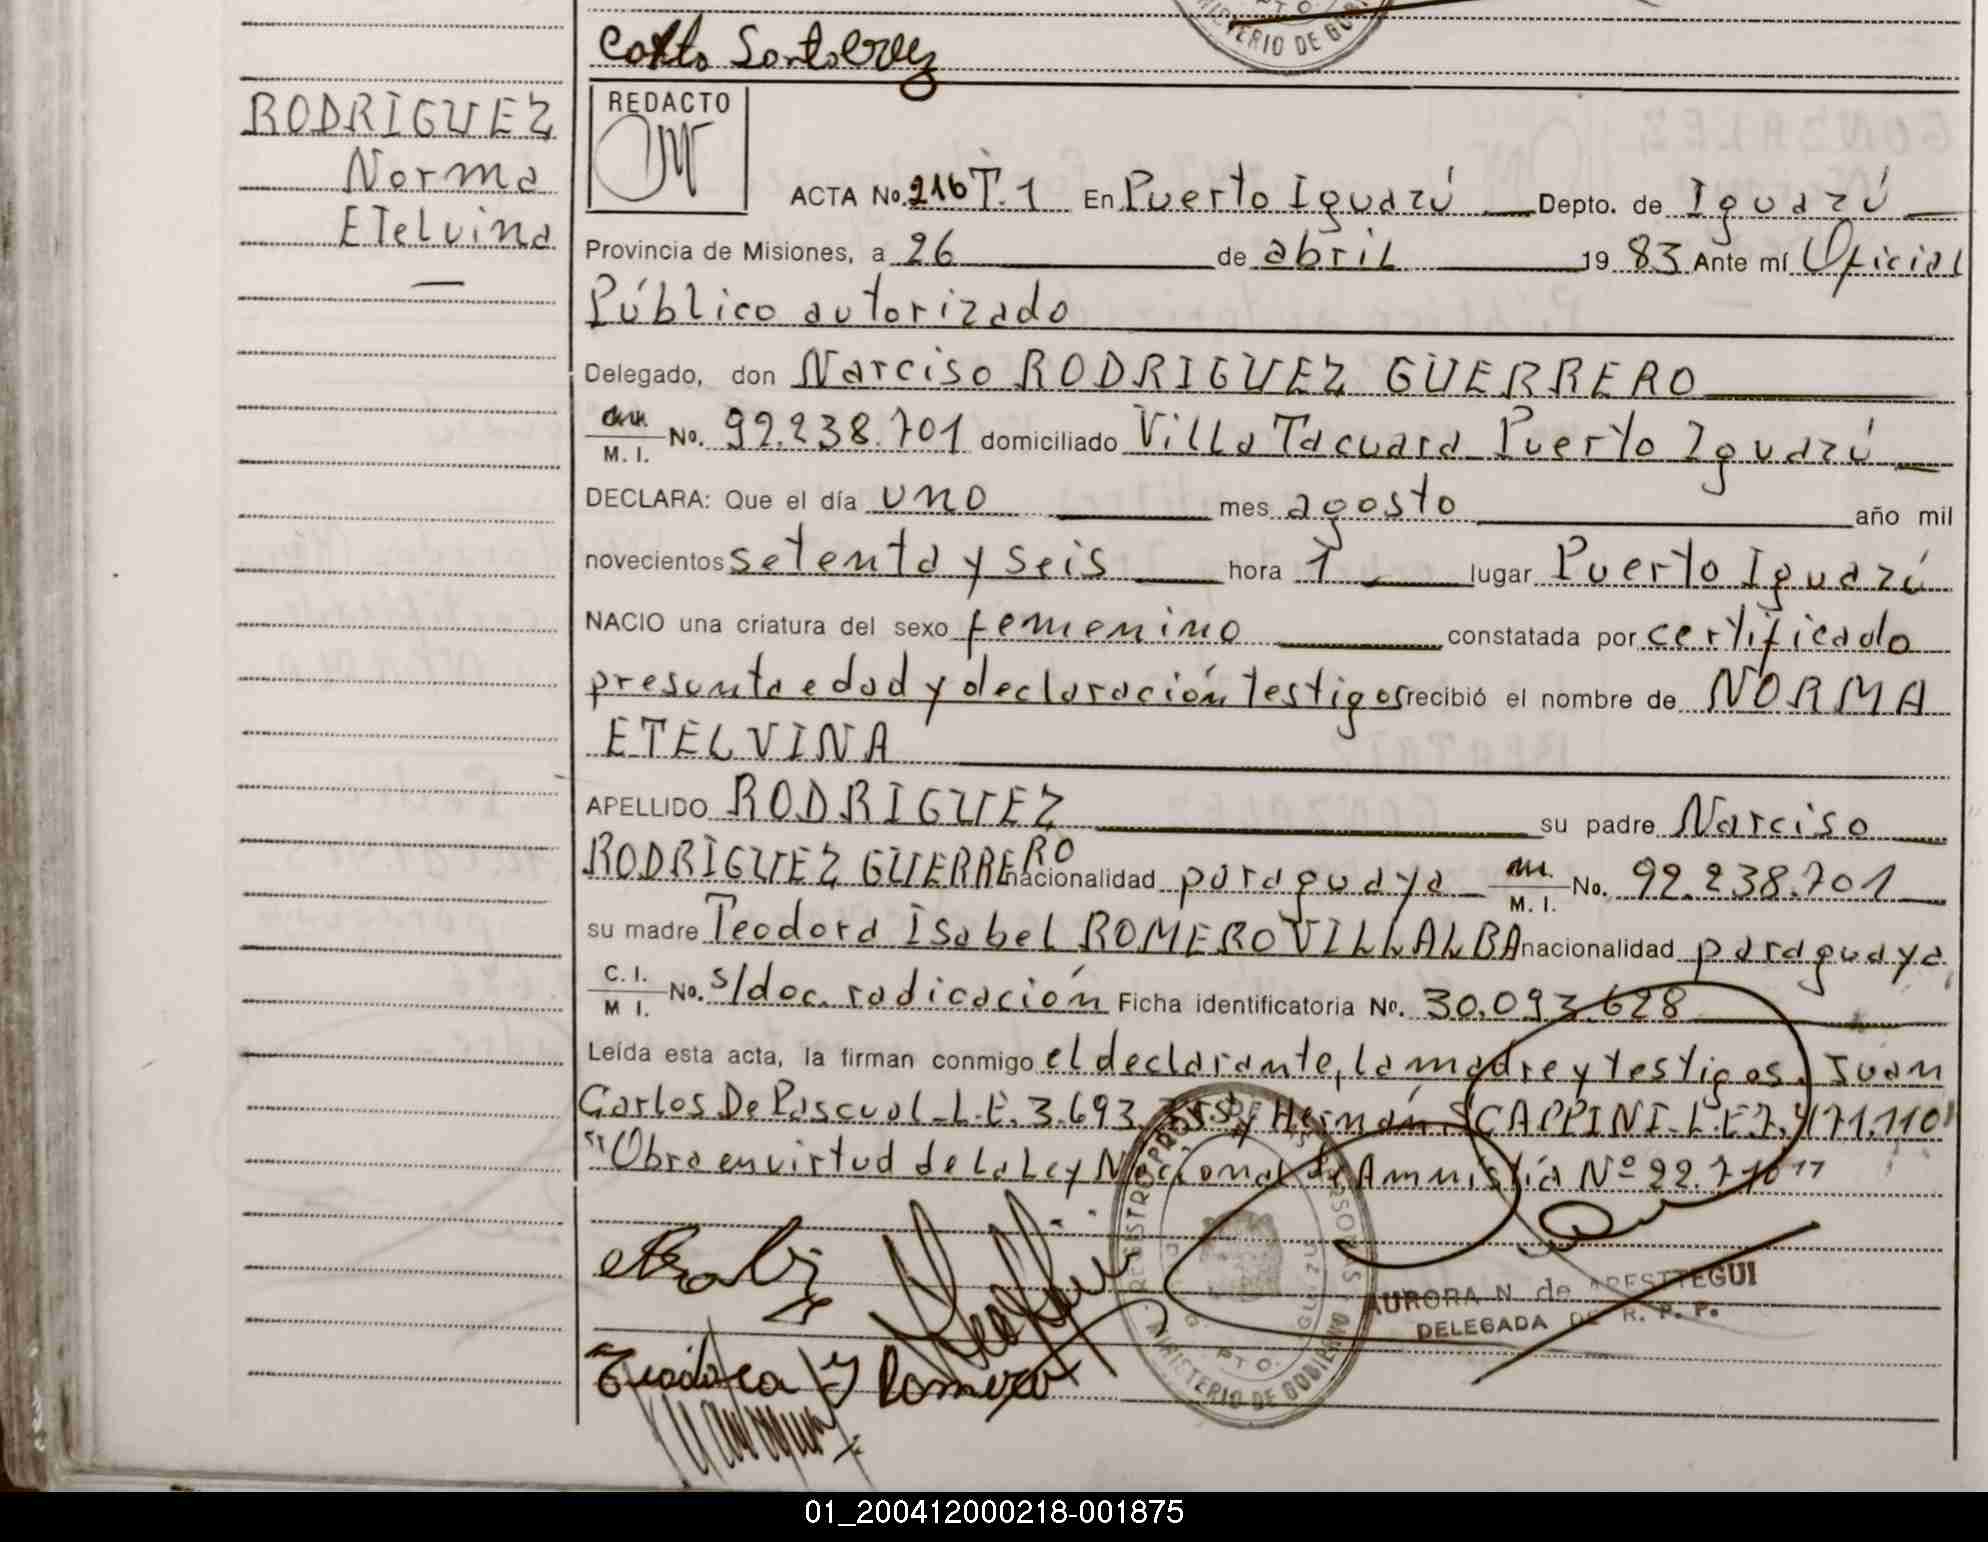 RODRIGUEZ
Norma
Etelvina
—
REDACTO
ACTA No. 216 T. 1 En Puerto Iguazú Depto. de Iguazú
Provincia de Misiones, a 26 de abril 19 83 Ante mí Oficial
Público autorizado
Delegado, don Narciso RODRIGUEZ GUERRERO
M. I. No. 92.238.701 domiciliado Villa Tacuara Puerto Iguazú
DECLARA: Que el día uno mes agosto año mil
novecientos setenta y seis hora 1 lugar Puerto Iguazú
NACIO una criatura del sexo femenino constatada por certificado
presunta edad y declaración testigos recibió el nombre de NORMA
ETELVINA
APELLIDO RODRIGUEZ su padre Narciso
RODRIGUEZ GUERRERO nacionalidad paraguaya M. I. No. 92.238.701
su madre Teodora Isabel ROMERO VILLALBA nacionalidad paraguaya
C. I. M I. No. s/doc. radicación Ficha identificatoria No. 30.093.628
Leída esta acta, la firman conmigo el declarante, la madre y testigos. Juan
Carlos De Pascual - L.E. 3.693. y Hernán SCAPPINI - L.E. 7.471.110
"Obra en virtud de la Ley Nacional de Amnistía Nº 22.710"
AURORA N. de ARESTTEGUI
DELEGADA DE R. P. P.
MINISTERIO DE GOBIERNO
Teodora Y Romero
01_200412000218-001875